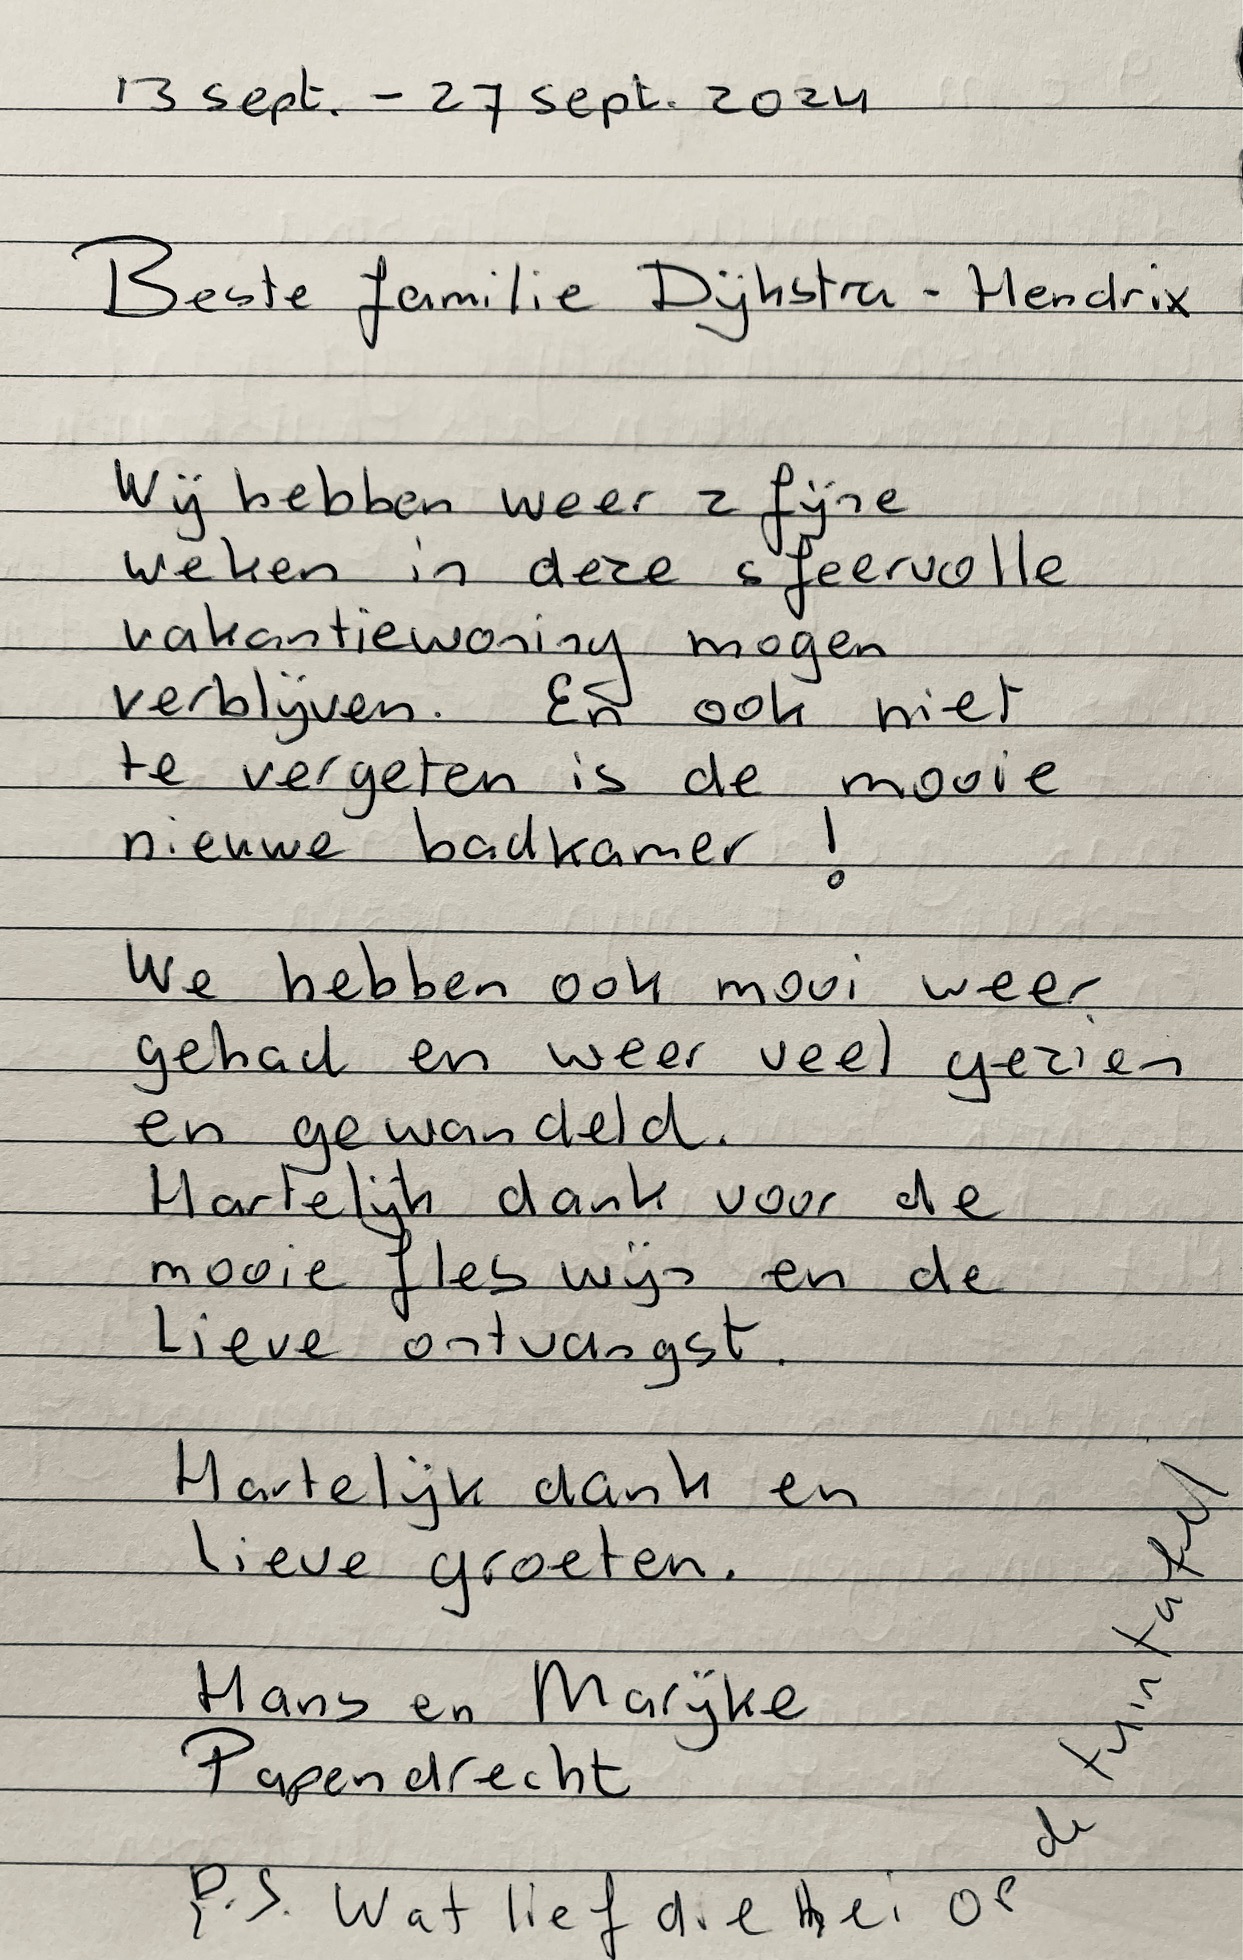 13 sept. - 27 sept. 2024
Beste familie Dijkstra - Hendrix
Wij hebben weer 2 fijne
weken in deze sfeervolle
vakantiewoning mogen
verblijven. En ook niet
te vergeten is de mooie
nieuwe badkamer !
We hebben ook mooi weer
gehad en weer veel gezien
en gewandeld.
Hartelijk dank voor de
mooie fles wijn en de
Lieve ontvangst.
Hartelijk dank en
lieve groeten.
Hans en Marijke
Papendrecht
P.S. Wat lief die hei op
de tuintafel